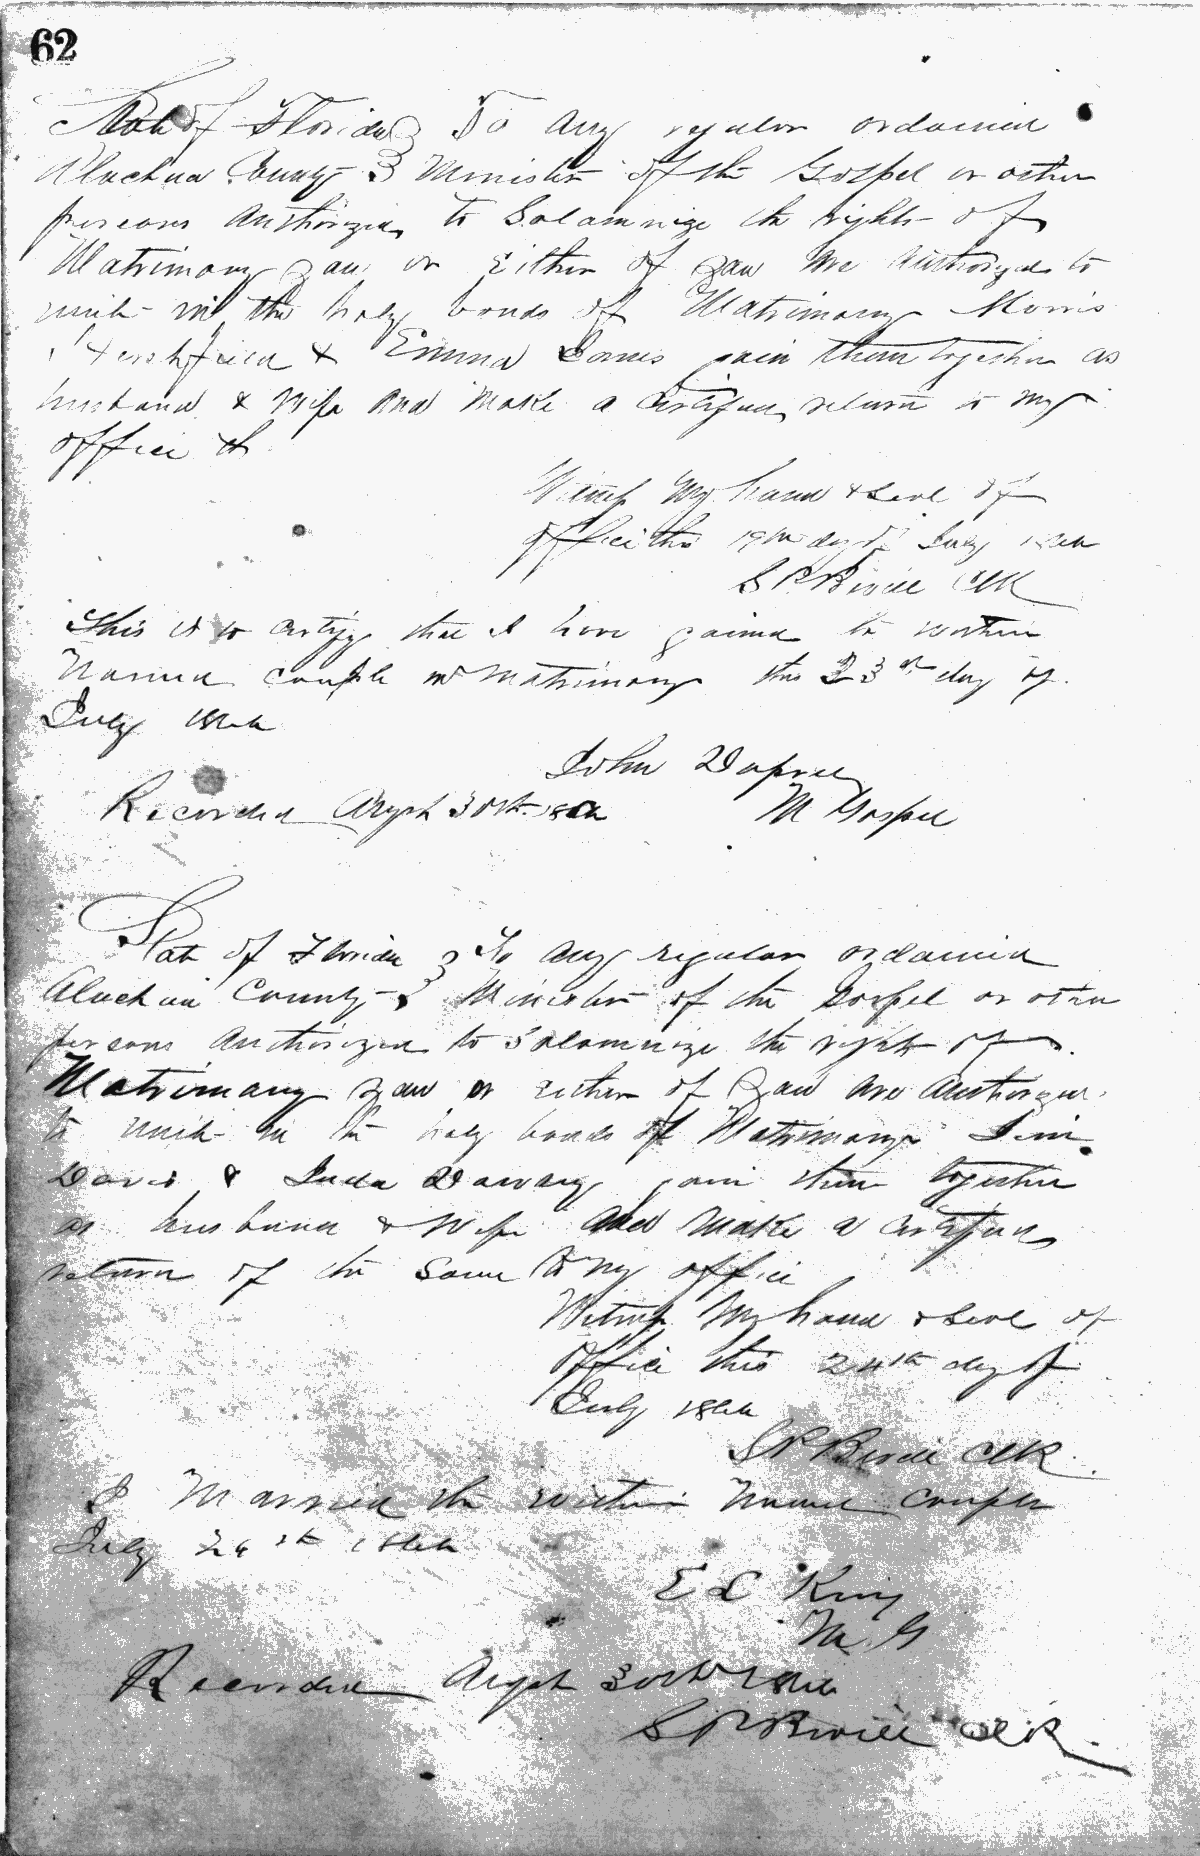 62
State of Florida } To Any regular ordained
Alachua County } Minister of the Gospel or other
persons Authorized to Solamnize the rights of
Matrimony you or Either of you are Authorized to
unite in the holy bonds of Matrimony Morris
& Emma join them together as
husband & Wife And Make a Certified return to my
office
Witness My hand & Seal of
office this 19th day of July
S P Clk
This is to certify that I have joined the within
Named couple in Matrimony this 23rd day of
July
John
Recorded 30th
M Gospel
State of Florida } To Any regular ordained
Alachua County } Minister of the Gospel or other
persons Authorized to Solamnize the rights of
Matrimony you or either of you are Authorized
to unite in the holy bonds of Matrimony
Davis & join them together
as husband & Wife And Make a Certified
return of the Same to my office
Witness My hand & Seal of
Office this 24th day of
July
S P Clk
I Married the within Named Couple
July
E L King
M G
Recorded 30th
S P Clk